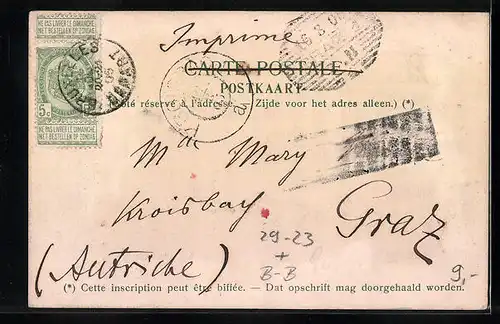 NE PAS LIVRER LE DIMANCHE
NIET BESTELLEN OP ZONDAG
5c
NE PAS LIVRER LE DIMANCHE
NIET BESTELLEN OP ZONDAG
Imprimé
CARTE POSTALE
POSTKAART
(Côté réservé à l'adresse. Zijde voor het adres alleen.) (*)
Mde Mary
Kroisbach
Graz
(Autriche)
29-23
+
B-B
9,-
(*) Cette inscription peut être biffée. — Dat opschrift mag doorgehaald worden.